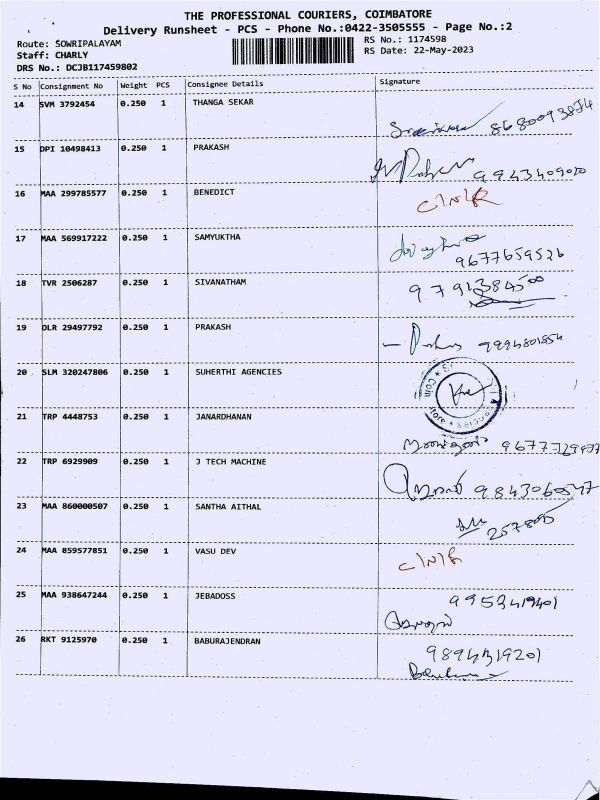 THE PROFESSIONAL COURIERS, COIMBATORE
Delivery Runsheet - PCS - Phone No.:0422-3505555 - Page No.:2
Route: SOWRIPALAYAM RS No.: 1174598
Staff: CHARLY RS Date: 22-May-2023
DRS No.: DCJB117459802
S No Consignment No Weight PCS Consignee Details Signature
14 SVM 3792454 0.250 1 THANGA SEKAR
15 DPI 10498413 0.250 1 PRAKASH
9943409020
16 MAA 299785577 0.250 1 BENEDICT C/N/R
17 MAA 569917222 0.250 1 SAMYUKTHA
9677659526
18 TVR 2506287 0.250 1 SIVANATHAM 9791384500
19 DLR 29497792 0.250 1 PRAKASH
9994801854
20 SLM 320247806 0.250 1 SUHERTHI AGENCIES
21 TRP 4448753 0.250 1 JANARDHANAN
22 TRP 6929909 0.250 1 J TECH MACHINE
23 MAA 860000507 0.250 1 SANTHA AITHAL
24 MAA 859577851 0.250 1 VASU DEV C/N/R
25 MAA 938647244 0.250 1 JEBADOSS
26 RKT 9125970 0.250 1 BABURAJENDRAN